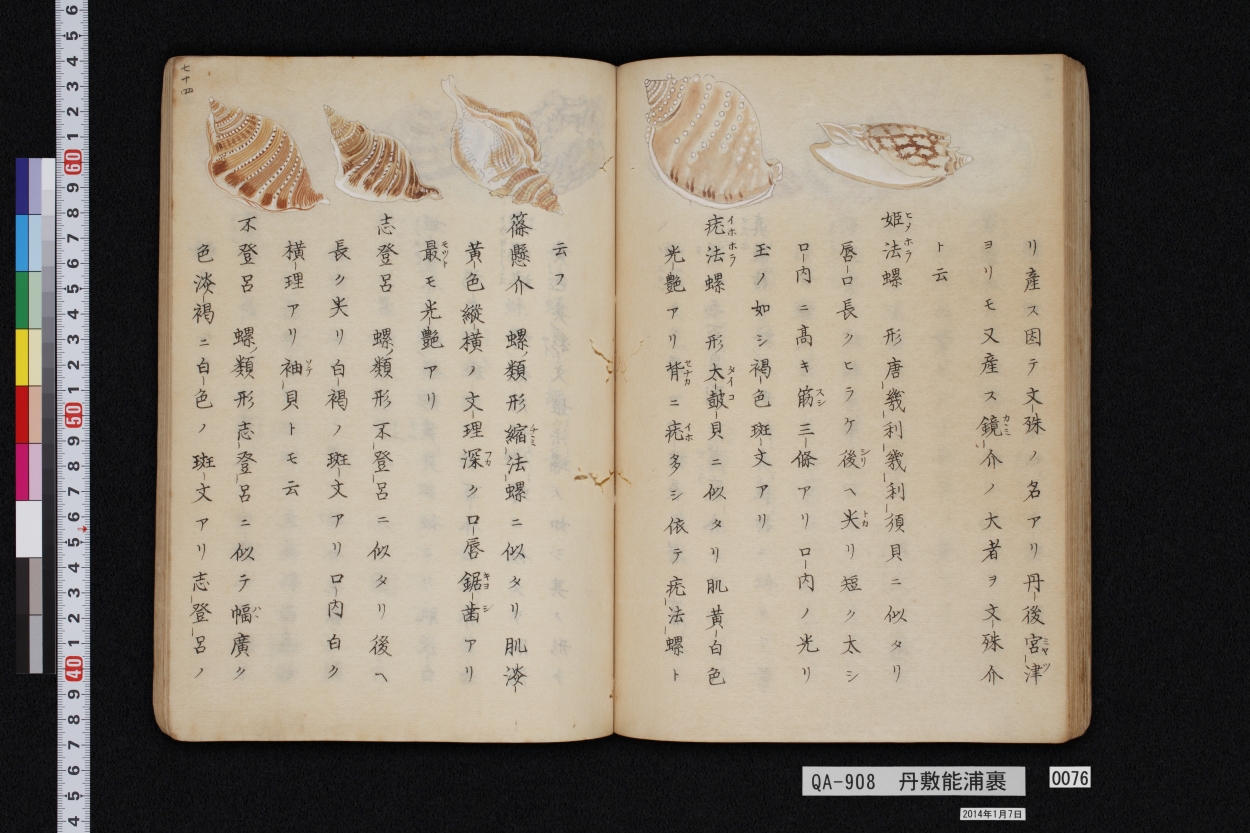 リ産ス因テ文殊ノ名アリ丹後宮津ミヤツ
ヨリモ又産ス鏡カヽミ介ノ大者ヲ文殊介
ト云
姫ヒメ法ホラ螺 形唐幾利幾利須貝ニ似タリ
唇口長クヒラケ後シリヘ尖トカリ短ク太シ
口内ニ高キ筋スシ三條アリ口内ノ光リ
玉ノ如シ褐色斑文アリ
疣イホ法ホラ螺 形太鼓タイコ貝ニ似タリ肌黄白色
光艶アリ背セナカニ疣イホ多シ依テ疣法螺ト
云フ
篠懸介 螺類形縮チヽミ法螺ニ似タリ肌淡
黄色縦横ノ文理深フカク口唇鋸キヨ歯シアリ
最モツトモ光艶アリ
志登呂 螺類形不登呂ニ似タリ後ヘ
長ク尖リ白褐ノ斑文アリ口内白ク
横理アリ袖ソテ貝トモ云
不登呂 螺類形志登呂ニ似テ幅ハヽ廣ク
色淡褐ニ白色ノ斑文アリ志登呂ノ
七十四
QA-908 丹敷能浦裹
0076
2014年1月7日